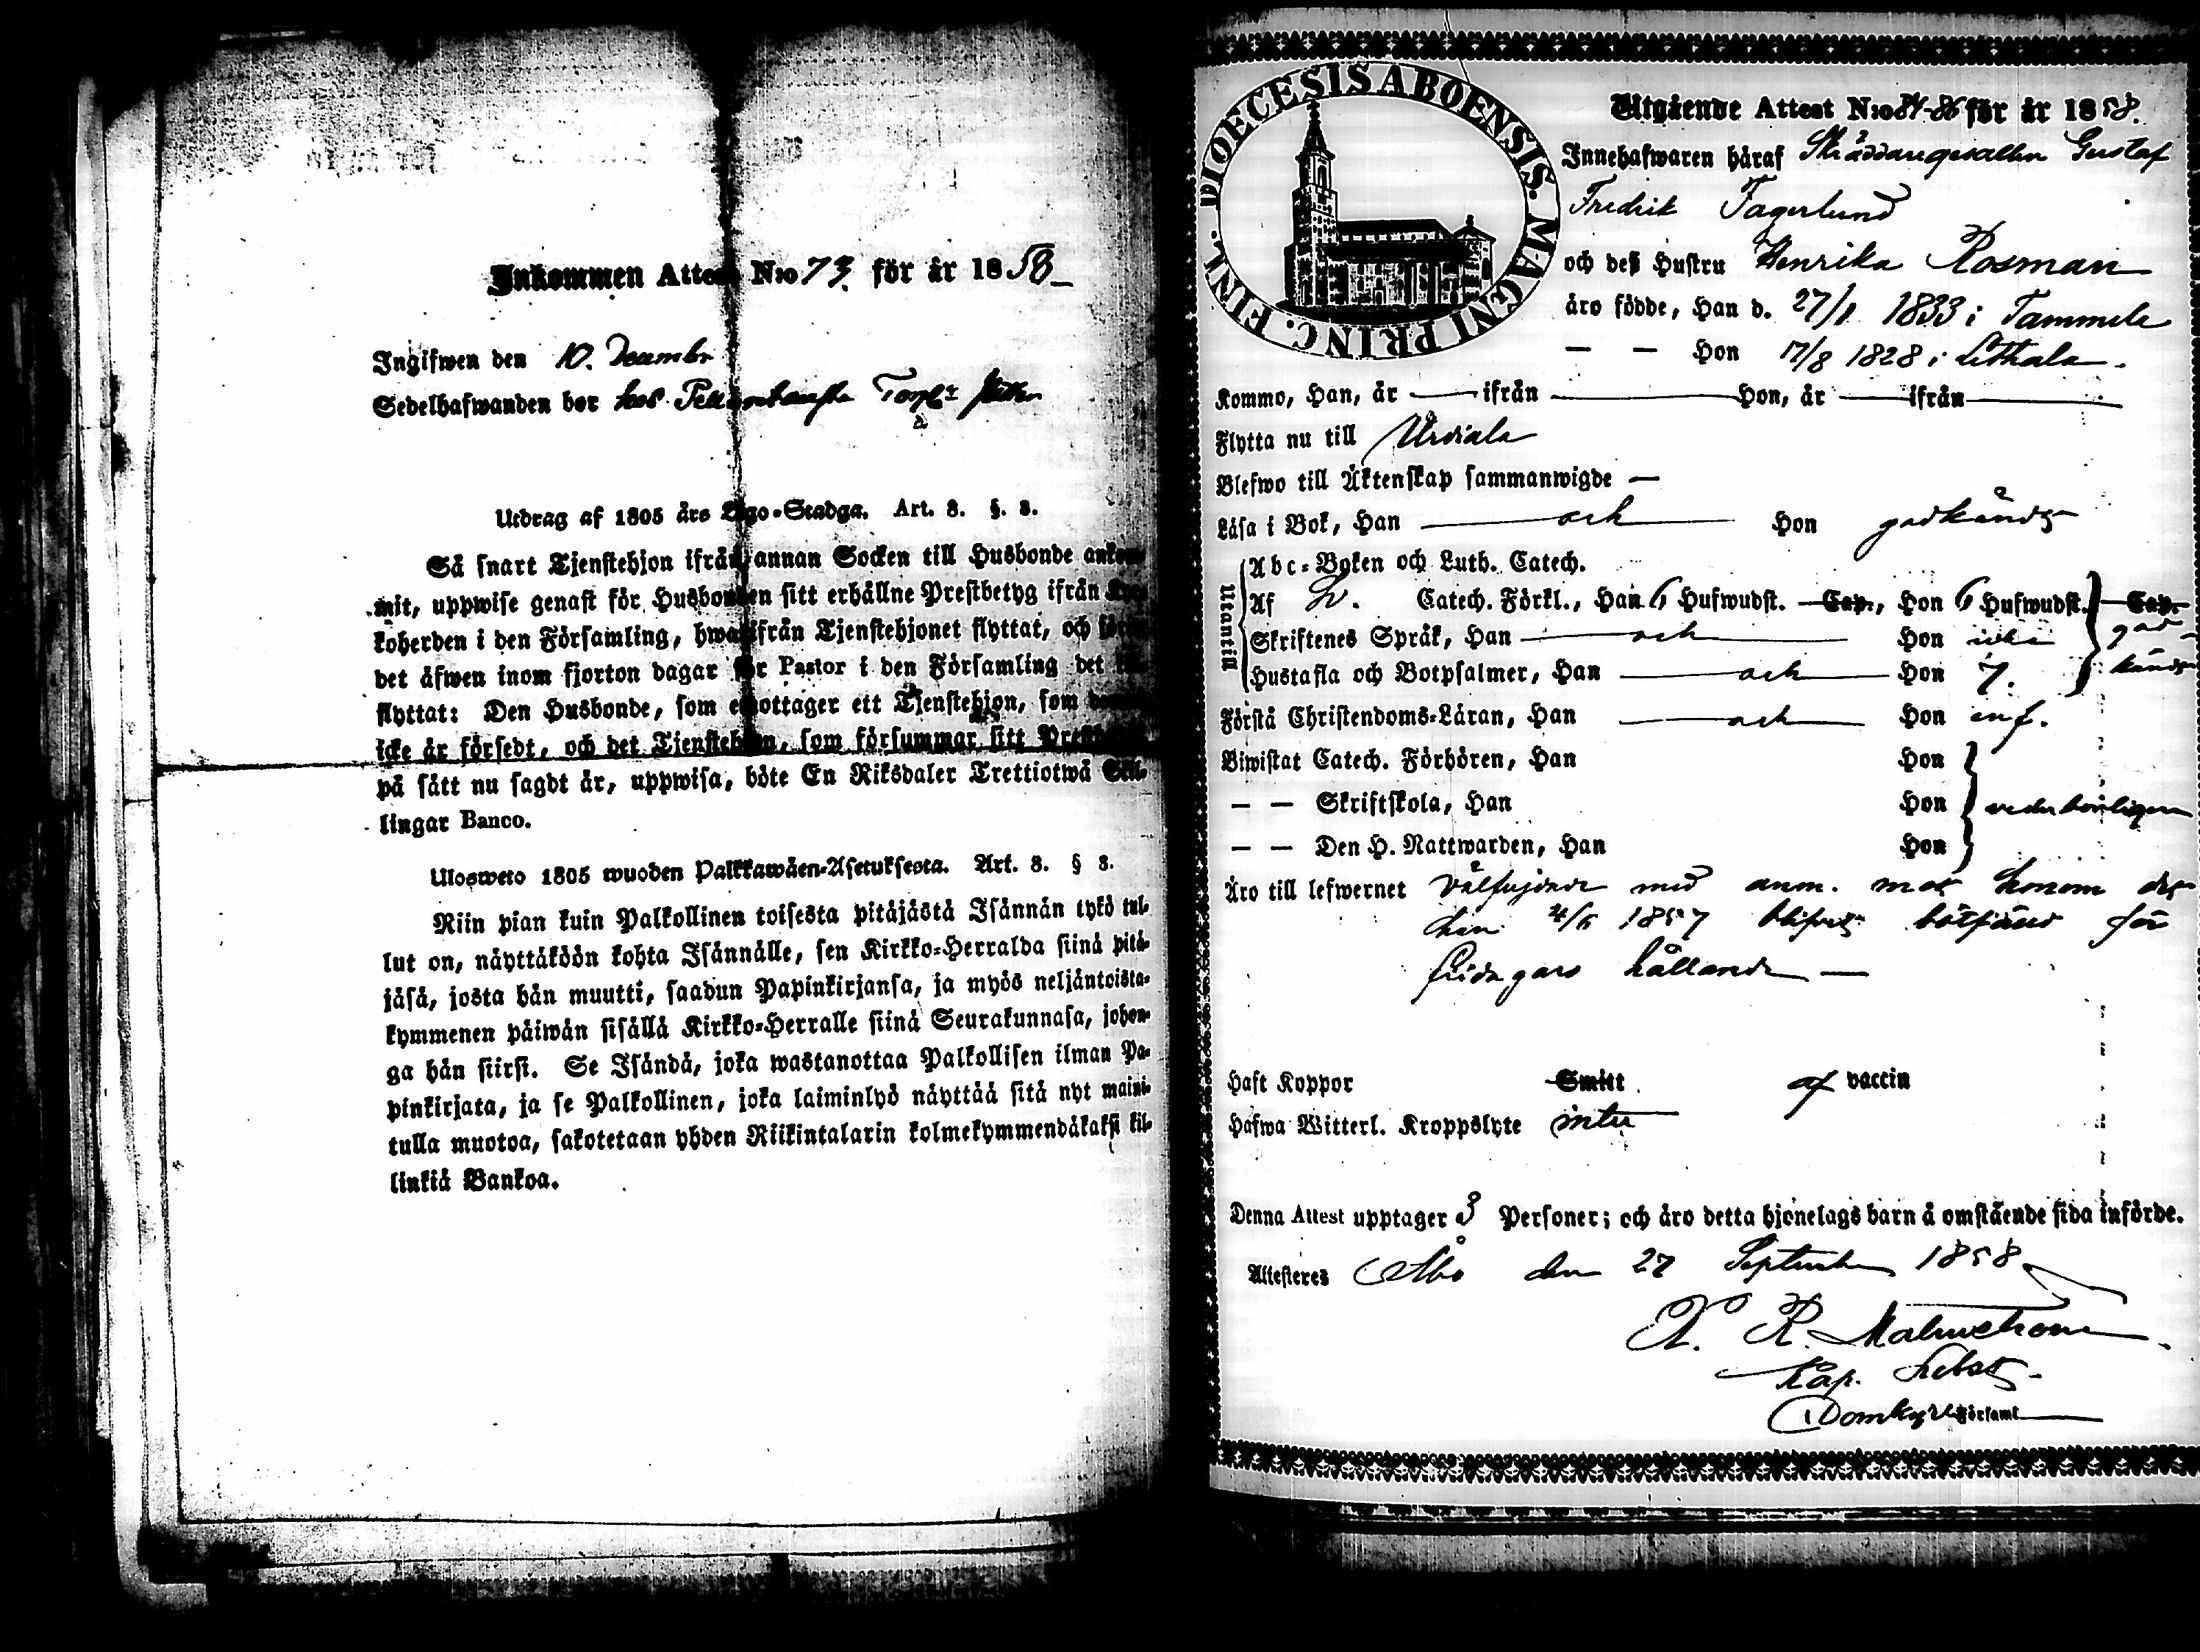 Inkommen Attest N:o 73. för år 1858
Ingifwen den 10. December
Sedelhafwanden bor hos
Utdrag af 1805 års Lego-Stadga. Art. 8. §. 8.
Så snart Tjenstehjon ifrån annan Socken till Husbonde ankom-
mit, uppwise genast för Husbonden sitt erhållne Prestbetyg ifrån Kyr-
koherden i den Församling, hwarifrån Tjenstehjonet flyttat, och
det äfwen inom fjorton dagar för Pastor i den Församling det
flyttat: Den Husbonde, som emottager ett Tjenstehjon, som
icke är försedt, och det Tjenstehjon, som försummar sitt
på sätt nu sagdt är, uppwisa, böte En Riksdaler Trettiotwå Skil-
lingar Banco.
Ulosweto 1805 wuoden Palkkawäen-Asetuksesta. Art. 8. § 8.
Niin pian kuin Palkollinen toisesta pitäjästä Isännän tykö tul-
lut on, näyttäköön kohta Isännälle, sen Kirkko-Herralda siinä pitä-
jäsä, josta hän muutti, saadun Papinkirjansa, ja myös neljäntoista-
kymmenen päiwän sisällä Kirkko-Herralle siinä Seurakunnasa, johon-
ga hän siirsi. Se Isändä, joka wastanottaa Palkollisen ilman Pa-
pinkirjata, ja se Palkollinen, joka laiminlyö näyttää sitä nyt maini-
tulla muotoa, sakotetaan yhden Riikintalarin kolmekymmendäkaksi kil-
linkiä Bankoa.
DIOECESIS ABOENSIS. MAGNI PRINC. FINL.
Utgående Attest N:o 84-86 för år 1858.
Innehafwaren häraf Skräddaregesällen Gustaf
Fredrik Fagerlund
och deß Hustru Henrika Rosman
äro födde, Han d. 27/1 1833 i Tammela
— — Hon 17/8 1828 i Lethala.
Kommo, Han, år — ifrån — Hon, år — ifrån —
Flytta nu till Urdiala
Blefwo till Äktenskap sammanwigde —
Läsa i Bok, Han — och — Hon godkändt
Utantill
Abc-Boken och Luth. Catech.
Af Sv. Catech. Förkl., Han 6 Hufwudst. Cap., Hon 6 Hufwudst. Cap.
Skriftenes Språk, Han — och — Hon icke god-
Hustafla och Botpsalmer, Han — och — Hon 7. kändt
Förstå Christendoms-Läran, Han — och — Hon inf.
Biwistat Catech. Förhören, Han Hon
— — Skriftskola, Han Hon vederbörligen
— — Den H. Nattwarden, Han Hon
Äro till lefwernet välfrejdade med anm. att honom det
han 4/6 1857 blifvit bötfälld för
hållande —
Haft Koppor Smitt af vaccin
Hafwa Witterl. Kroppslyte intet
Denna Attest upptager 3 Personer; och äro detta hjonelags barn å omstående sida införde.
Attesteres Åbo den 27 September 1858
K. R. Malmström.
Kap. Adst.
i Domkyrko Församl.